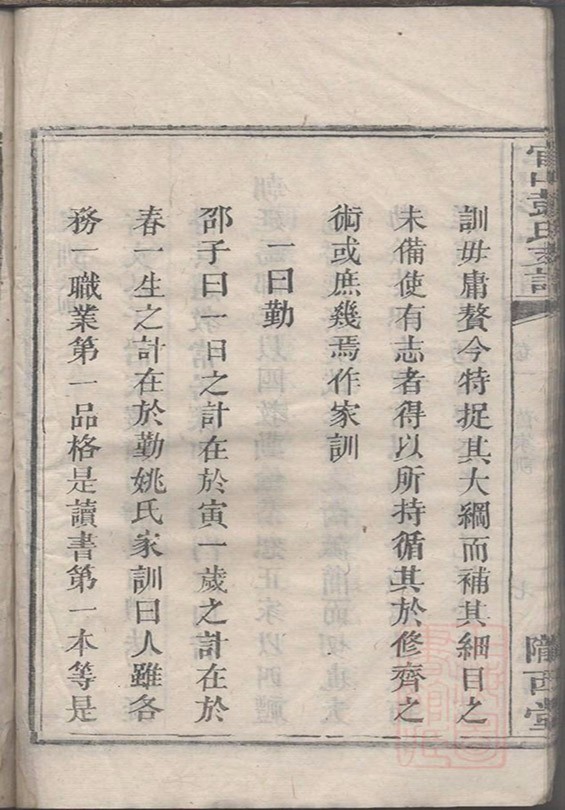 訓毋庸贅今特捉其大綱而補其細目之
未備使有志者得以所持循其於修齊之
術或庶幾焉作家訓
一曰勤
邵子曰一日之計在於寅一歲之計在於
春一生之計在於勤姚氏家訓曰人雖各
務一職業第一品格是讀書第一本等是
隴西堂